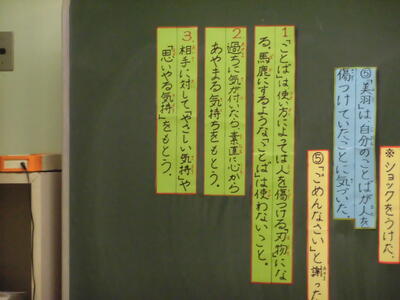 ※ショックをうけた。
⑤「美羽」は、自分のことばが人を
傷つけていたことに気づいた。
⑤「ごめんなさい」と謝った
1「ことば」は使い方によっては人を傷つける「刃物」にな
る。馬鹿にするような「ことば」は使わないこと。
2 過ちに気が付いたら素直に心から
あやまる気持ちをもとう。
3 相手に対して「やさしい気持」や
「思いやる気持」をもとう。